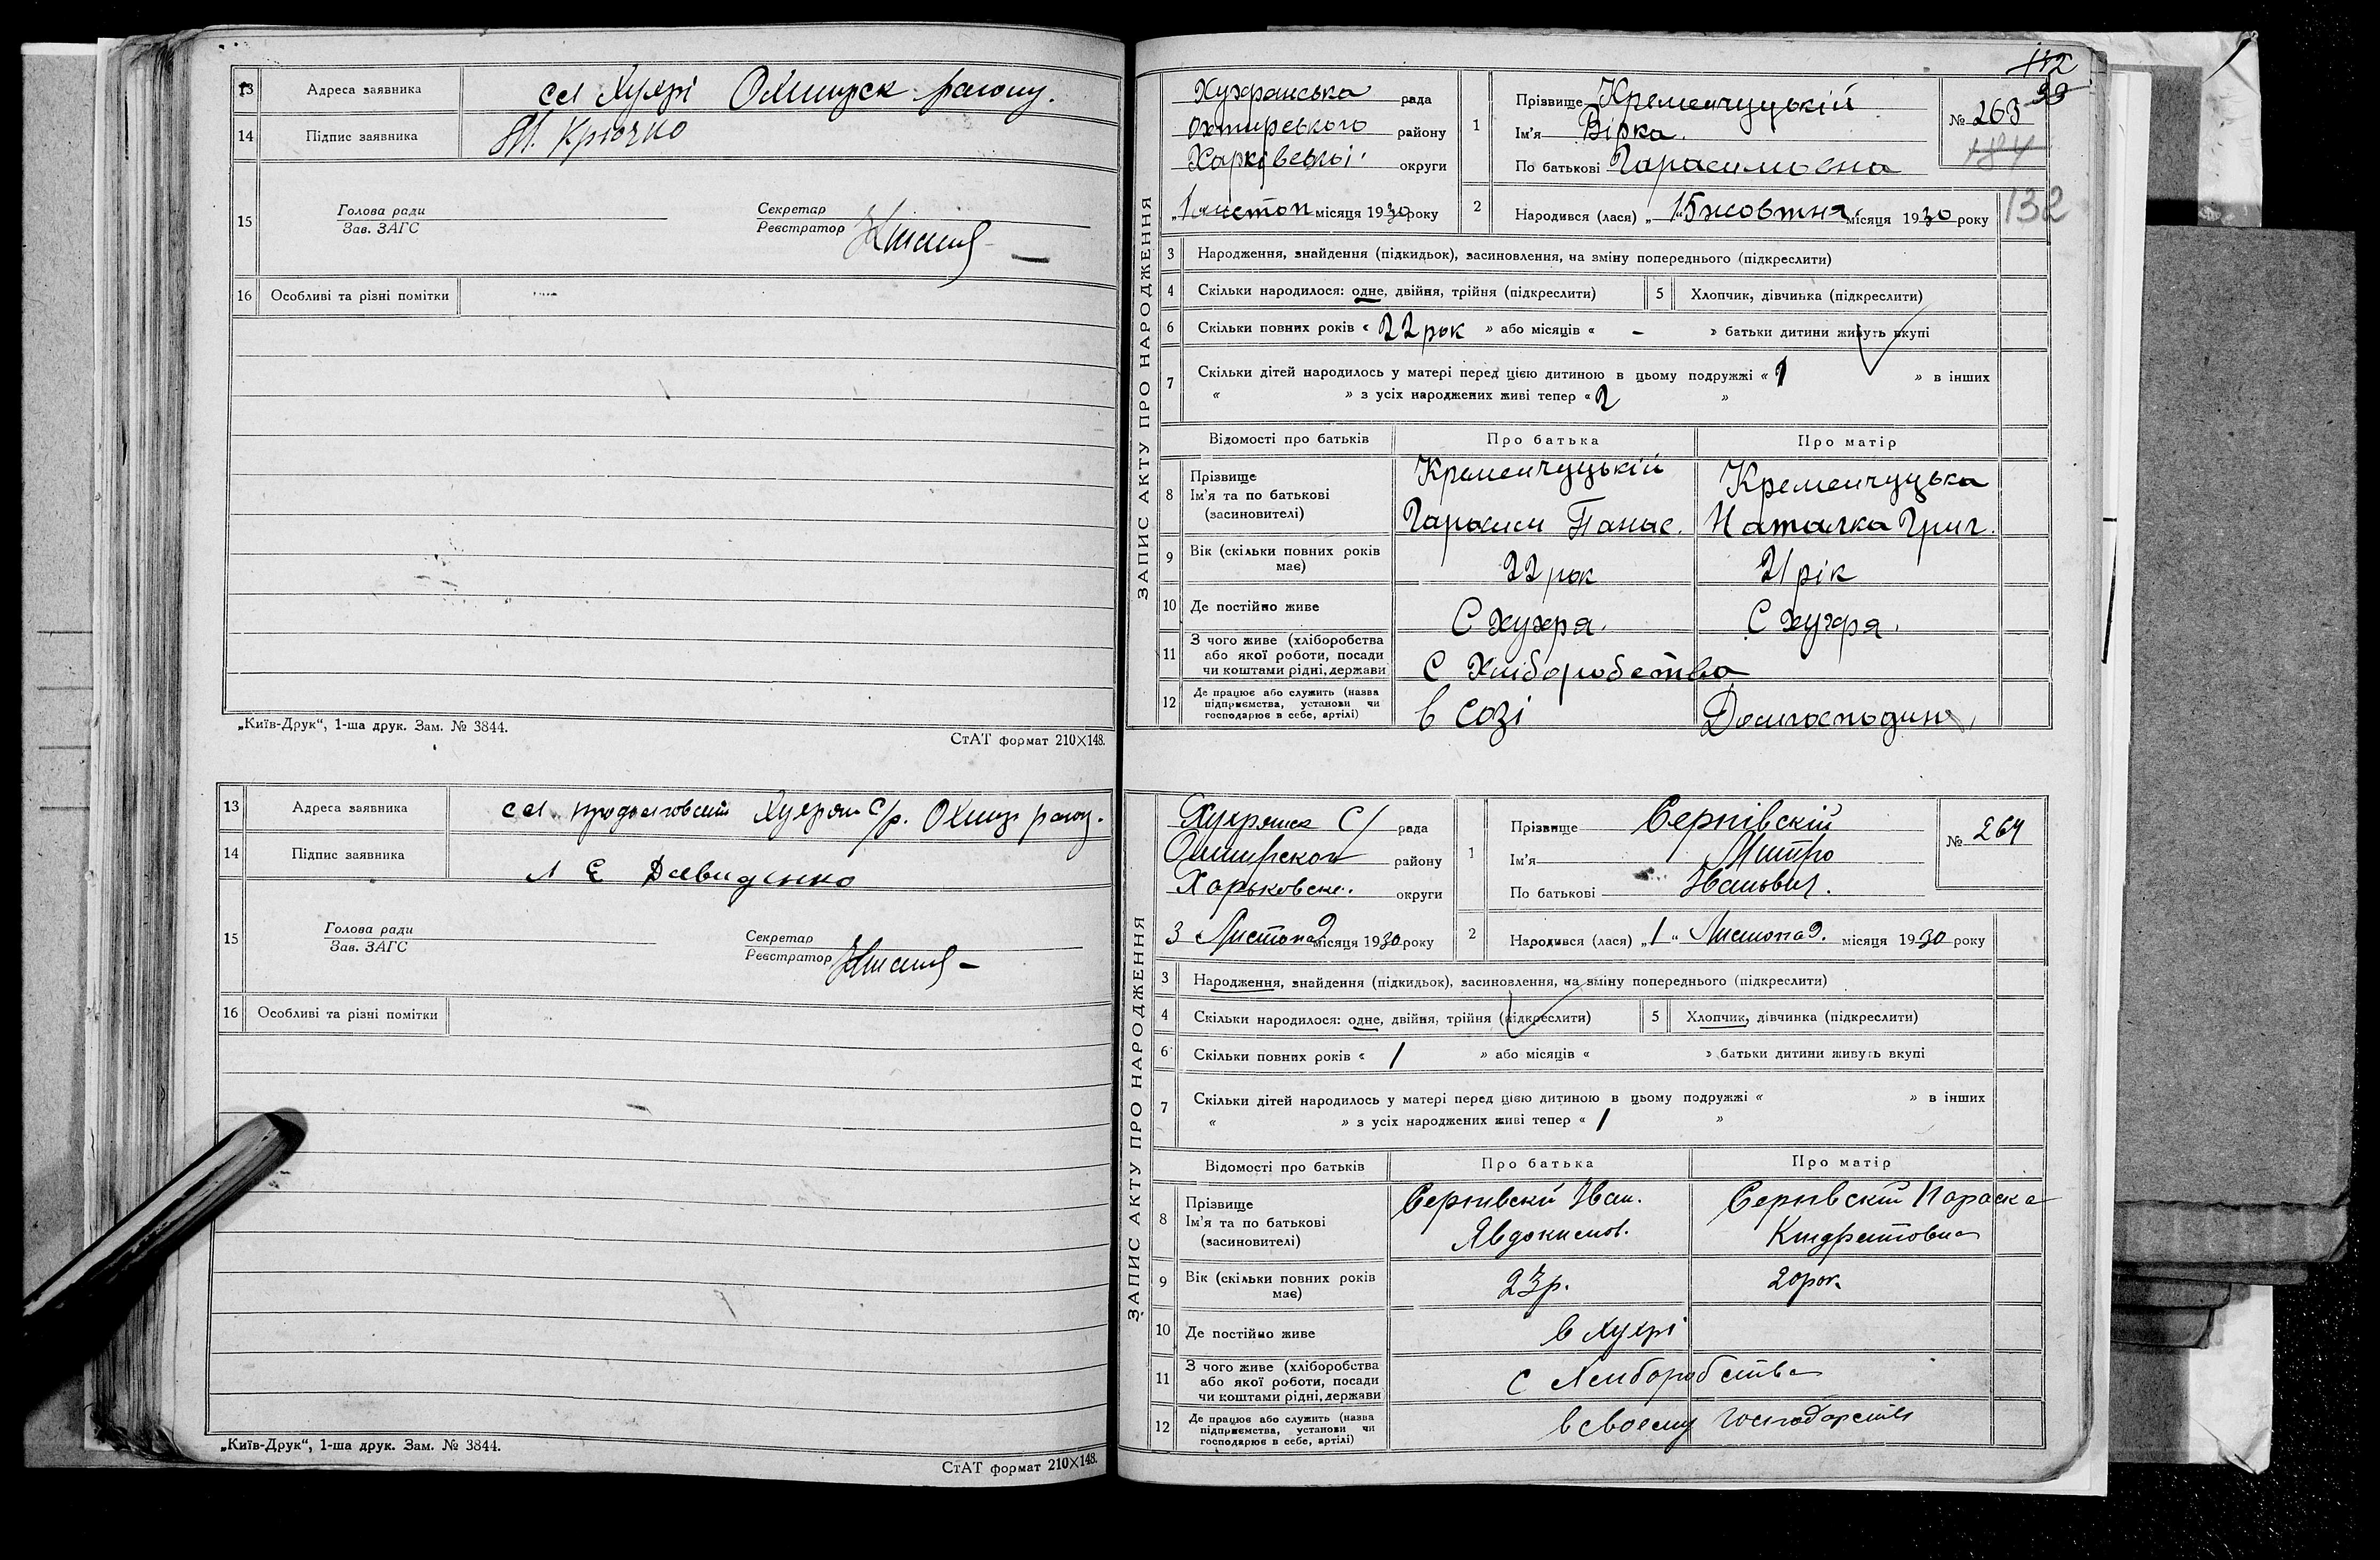 13 Адреса заявника сел Хухрі Охтирск району.
14 Підпис заявника М. Крючко
15 Голова ради
Зав. ЗАГС
Секретар
Реєстратор
16 Особливі та різні помітки
„Київ-Друк“, 1-ша друк. Зам. № 3844.
СтАТ формат 210×148.
13 Адреса заявника сел Хухрян С/р. Охтир району.
14 Підпис заявника Л Е Давиденко
15 Голова ради
Зав. ЗАГС
Секретар
Реєстратор
16 Особливі та різні помітки
„Київ-Друк“, 1-ша друк. Зам. № 3844.
СтАТ формат 210×148.
112
99
ЗАПИС АКТУ ПРО НАРОДЖЕННЯ
Хухранська рада
Охтирського району
Харківської округи
„1 листоп місяця 1930 року
1 Прізвище Кременчуцькій
Ім'я Вірка.
По батькові Гарасимовна
№ 263
184
132
2 Народився (лася) „15 жовтня місяця 1930 року
3 Народження, знайдення (підкидьок), засиновлення, на зміну попереднього (підкреслити)
4 Скільки народилося: одне, двійня, трійня (підкреслити) 5 Хлопчик, дівчинка (підкреслити)
6 Скільки повних років « 22 рок » або місяців « - » батьки дитини живуть вкупі
7 Скільки дітей народилось у матері перед цією дитиною в цьому подружжі « 1 » в інших
« » з усіх народжених живі тепер « 2 »
Відомості про батьків Про батька Про матір
8 Прізвище Ім'я та по батькові (засиновителі) Кременчуцькій Кременчуцька
Гарасим Панас. Наталка Григ.
9 Вік (скільки повних років має) 22 рок 21 рік
10 Де постійно живе С Хухря. С Хухря.
11 З чого живе (хліборобства або якої роботи, посади чи коштами рідні, держави С Хліборобства
12 Де працює або служить (назва підприємства, установи чи господарює в себе, артілі) в Созі Домгосподиня
ЗАПИС АКТУ ПРО НАРОДЖЕННЯ
Хухрянск С/ рада
Охтирског району
Харьковск. округи
3 Листопад місяця 1930 року
1 Прізвище Серпівскій
Ім'я Митро
По батькові Іванович.
№ 264
2 Народився (лася) „1“ Листопад. місяця 1930 року
3 Народження, знайдення (підкидьок), засиновлення, на зміну попереднього (підкреслити)
4 Скільки народилося: одне, двійня, трійня (підкреслити) 5 Хлопчик, дівчинка (підкреслити)
6 Скільки повних років « 1 » або місяців « » батьки дитини живуть вкупі
7 Скільки дітей народилось у матері перед цією дитиною в цьому подружжі « » в інших
« » з усіх народжених живі тепер « 1 »
Відомості про батьків Про батька Про матір
8 Прізвище Ім'я та по батькові (засиновителі) Серпивскй Іван. Серпивскій Параска
Явдокимов. Киндратовна
9 Вік (скільки повних років має) 23 р. 20 рок.
10 Де постійно живе в Хухрі
11 З чого живе (хліборобства або якої роботи, посади чи коштами рідні, держави С Хлиборобства
12 Де працює або служить (назва підприємства, установи чи господарює в себе, артілі) в своєму господарстві